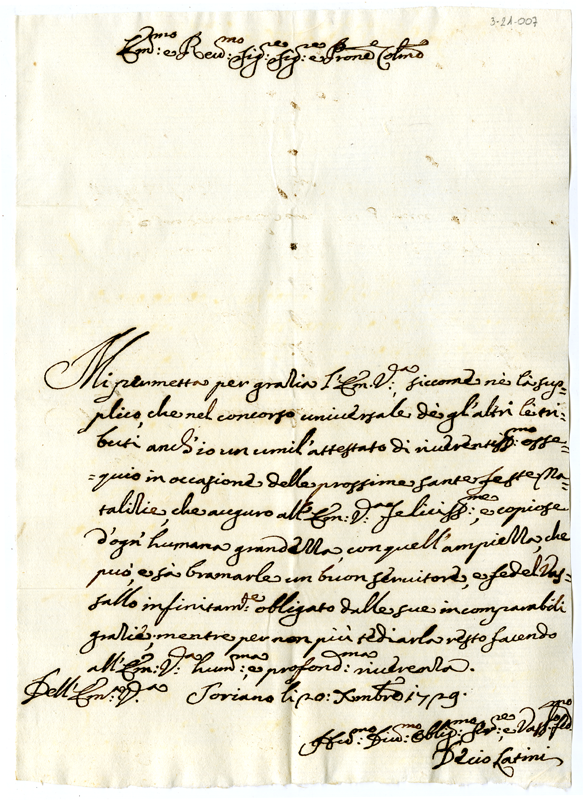 3-21-007
Em:mo e Reu:mo Sig:re Sig:re e Prone Colmo
Mi permetta per grazia l'Em: V:ra siccome nè la sup=
plico, che nel concorso universale dè gl'altri le tri=
buti anch'io un umil'attestato di riverentiss:mo osse=
=quio in occasione delle prossime sante feste Na=
talizie, che auguro all'Em: V:ra feliciss:me, e copiose
d'ogn'humana grandezza, con quell'ampiezza, che
può, e sà bramarle un buon servitore, e fedel Vas=
sallo infinitam:te obligato dalle sue incomparabili
grazie, mentre per non più tediarla resto facendo
all'Em: V:ra hum:ma, e profond:ma riverenza.
Dell'Em: V:ra Soriano li 20: Xmbre 1729.
Diu:mo Oblig:mo Ser:re e Vass:lo
Decio Latini